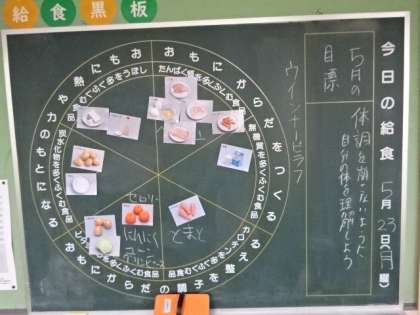 給食黒板
今日の給食 5月23日(月曜)
5月の目標
体調を崩さないように
自分の体を理解しよう
ウインナーピラフ
おもにからだをつくる
おもにからだの調子を整える
おもに熱や力のもとになる
たんぱく質を多くふくむ食品
無機質を多くふくむ食品
カロテンを多くふくむ食品
ビタミンCを多くふくむ食品
炭水化物を多くふくむ食品
しぼうを多くふくむ食品
セロリー
にんにく
コーン
とまと